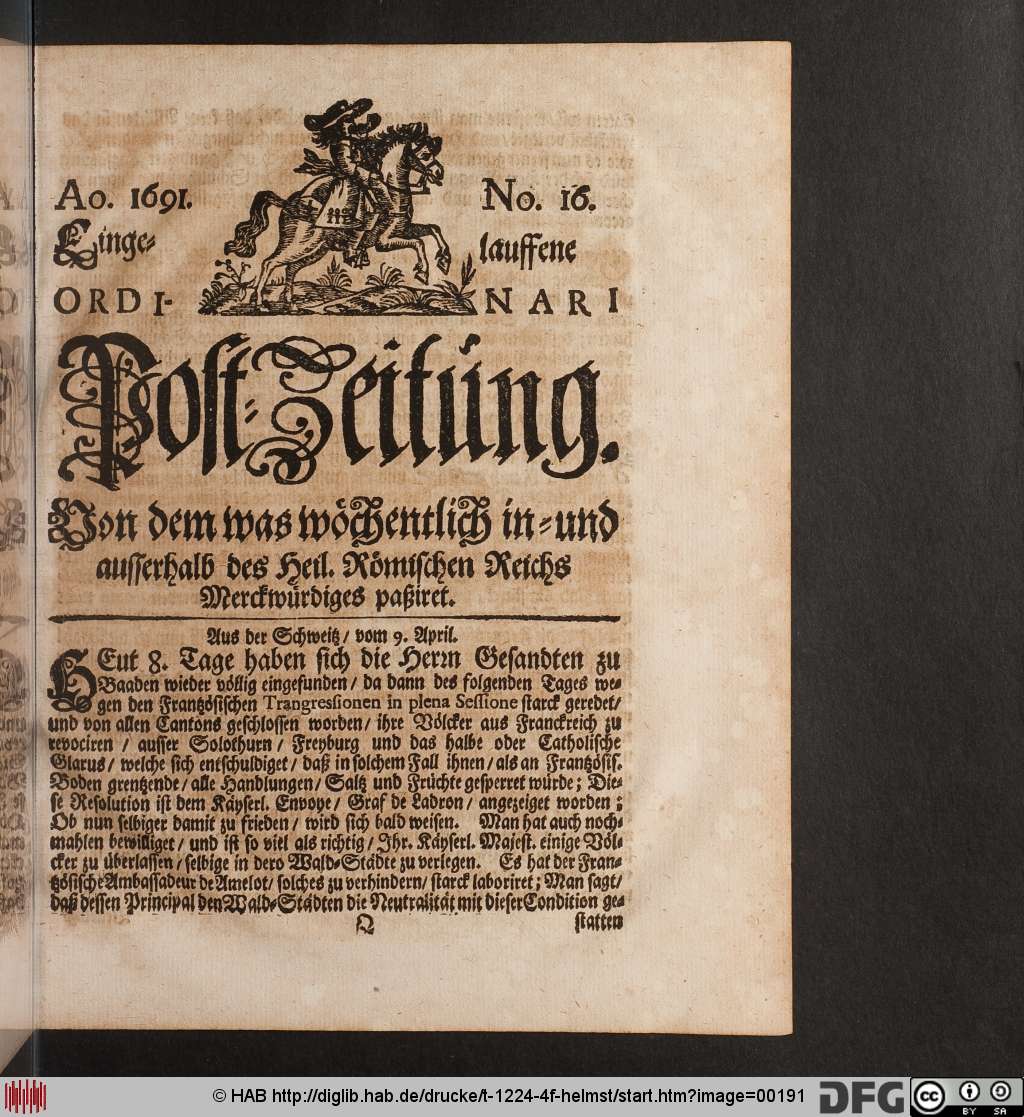 Ao. 1691. No. 16.
Einge- lauffene
ORDI- NARI
Post-Zeitung.
Von dem was wöchentlich in- und
ausserhalb des Heil. Römischen Reichs
Merckwürdiges paßiret.
Aus der Schweitz / vom 9. April.
HEut 8. Tage haben sich die Herrn Gesandten zu
Baaden wieder völlig eingefunden / da dann des folgenden Tages we-
gen den Frantzösischen Trangressionen in plena Sessione starck geredet /
und von allen Cantons geschlossen worden / ihre Völcker aus Franckreich zu
revociren / ausser Solothurn / Freyburg und das halbe oder Catholische
Glarus / welche sich entschuldiget / daß in solchem Fall ihnen / als an Frantzösis.
Boden grentzende / alle Handlungen / Saltz und Früchte gesperret würde ; Die-
se Resolution ist dem Käyserl. Envoye / Graf de Ladron / angezeiget worden ;
Ob nun selbiger damit zu frieden / wird sich bald weisen. Man hat auch noch-
mahlen bewilliget / und ist so viel als richtig / Ihr. Käyserl. Majest. einige Völ-
cker zu überlassen / selbige in dero Wald-Städte zu verlegen. Es hat der Fran-
tzösische Ambassadeur de Amelot / solches zu verhindern / starck laboriret ; Man sagt /
daß dessen Principal den Wald-Städten die Neutralität mit dieser Condition ge-
Q statten
© HAB http://diglib.hab.de/drucke/t-1224-4f-helmst/start.htm?image=00191
DFG
cc
BY SA